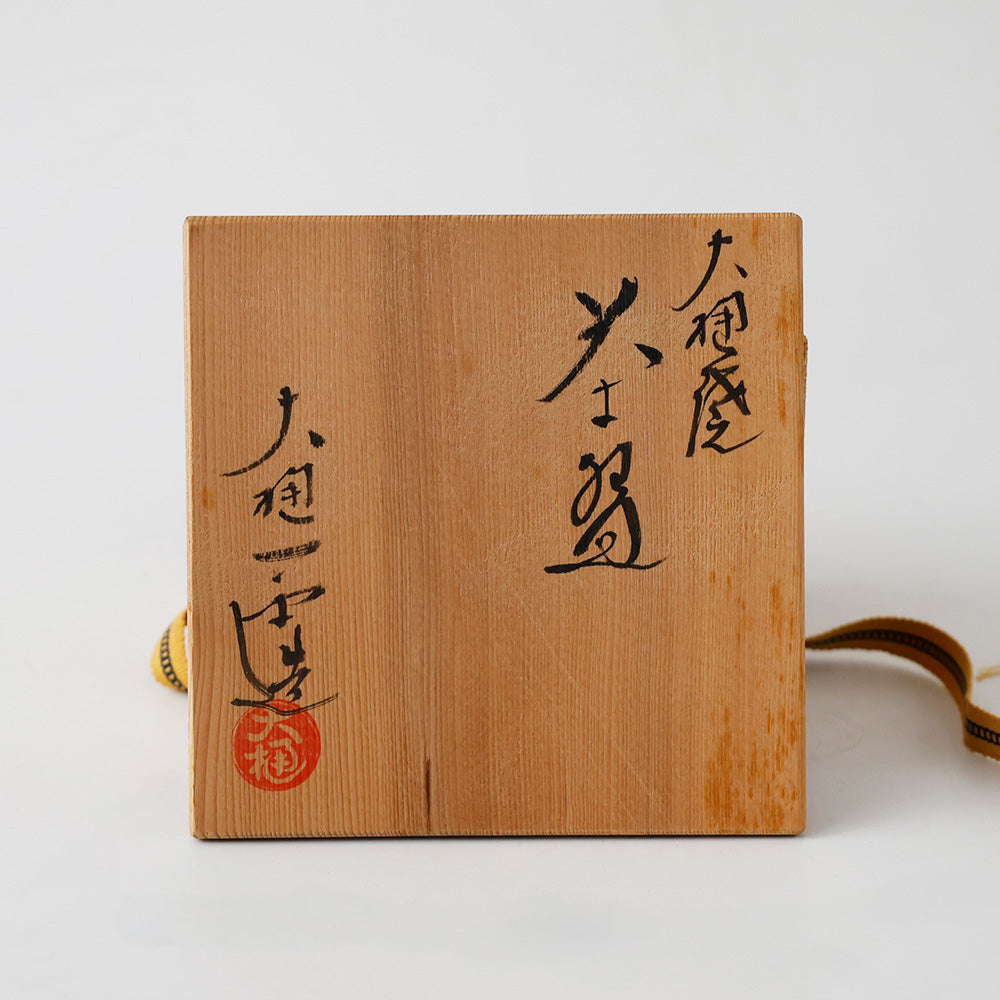 大樋焼
茶盌
大樋一造
大樋